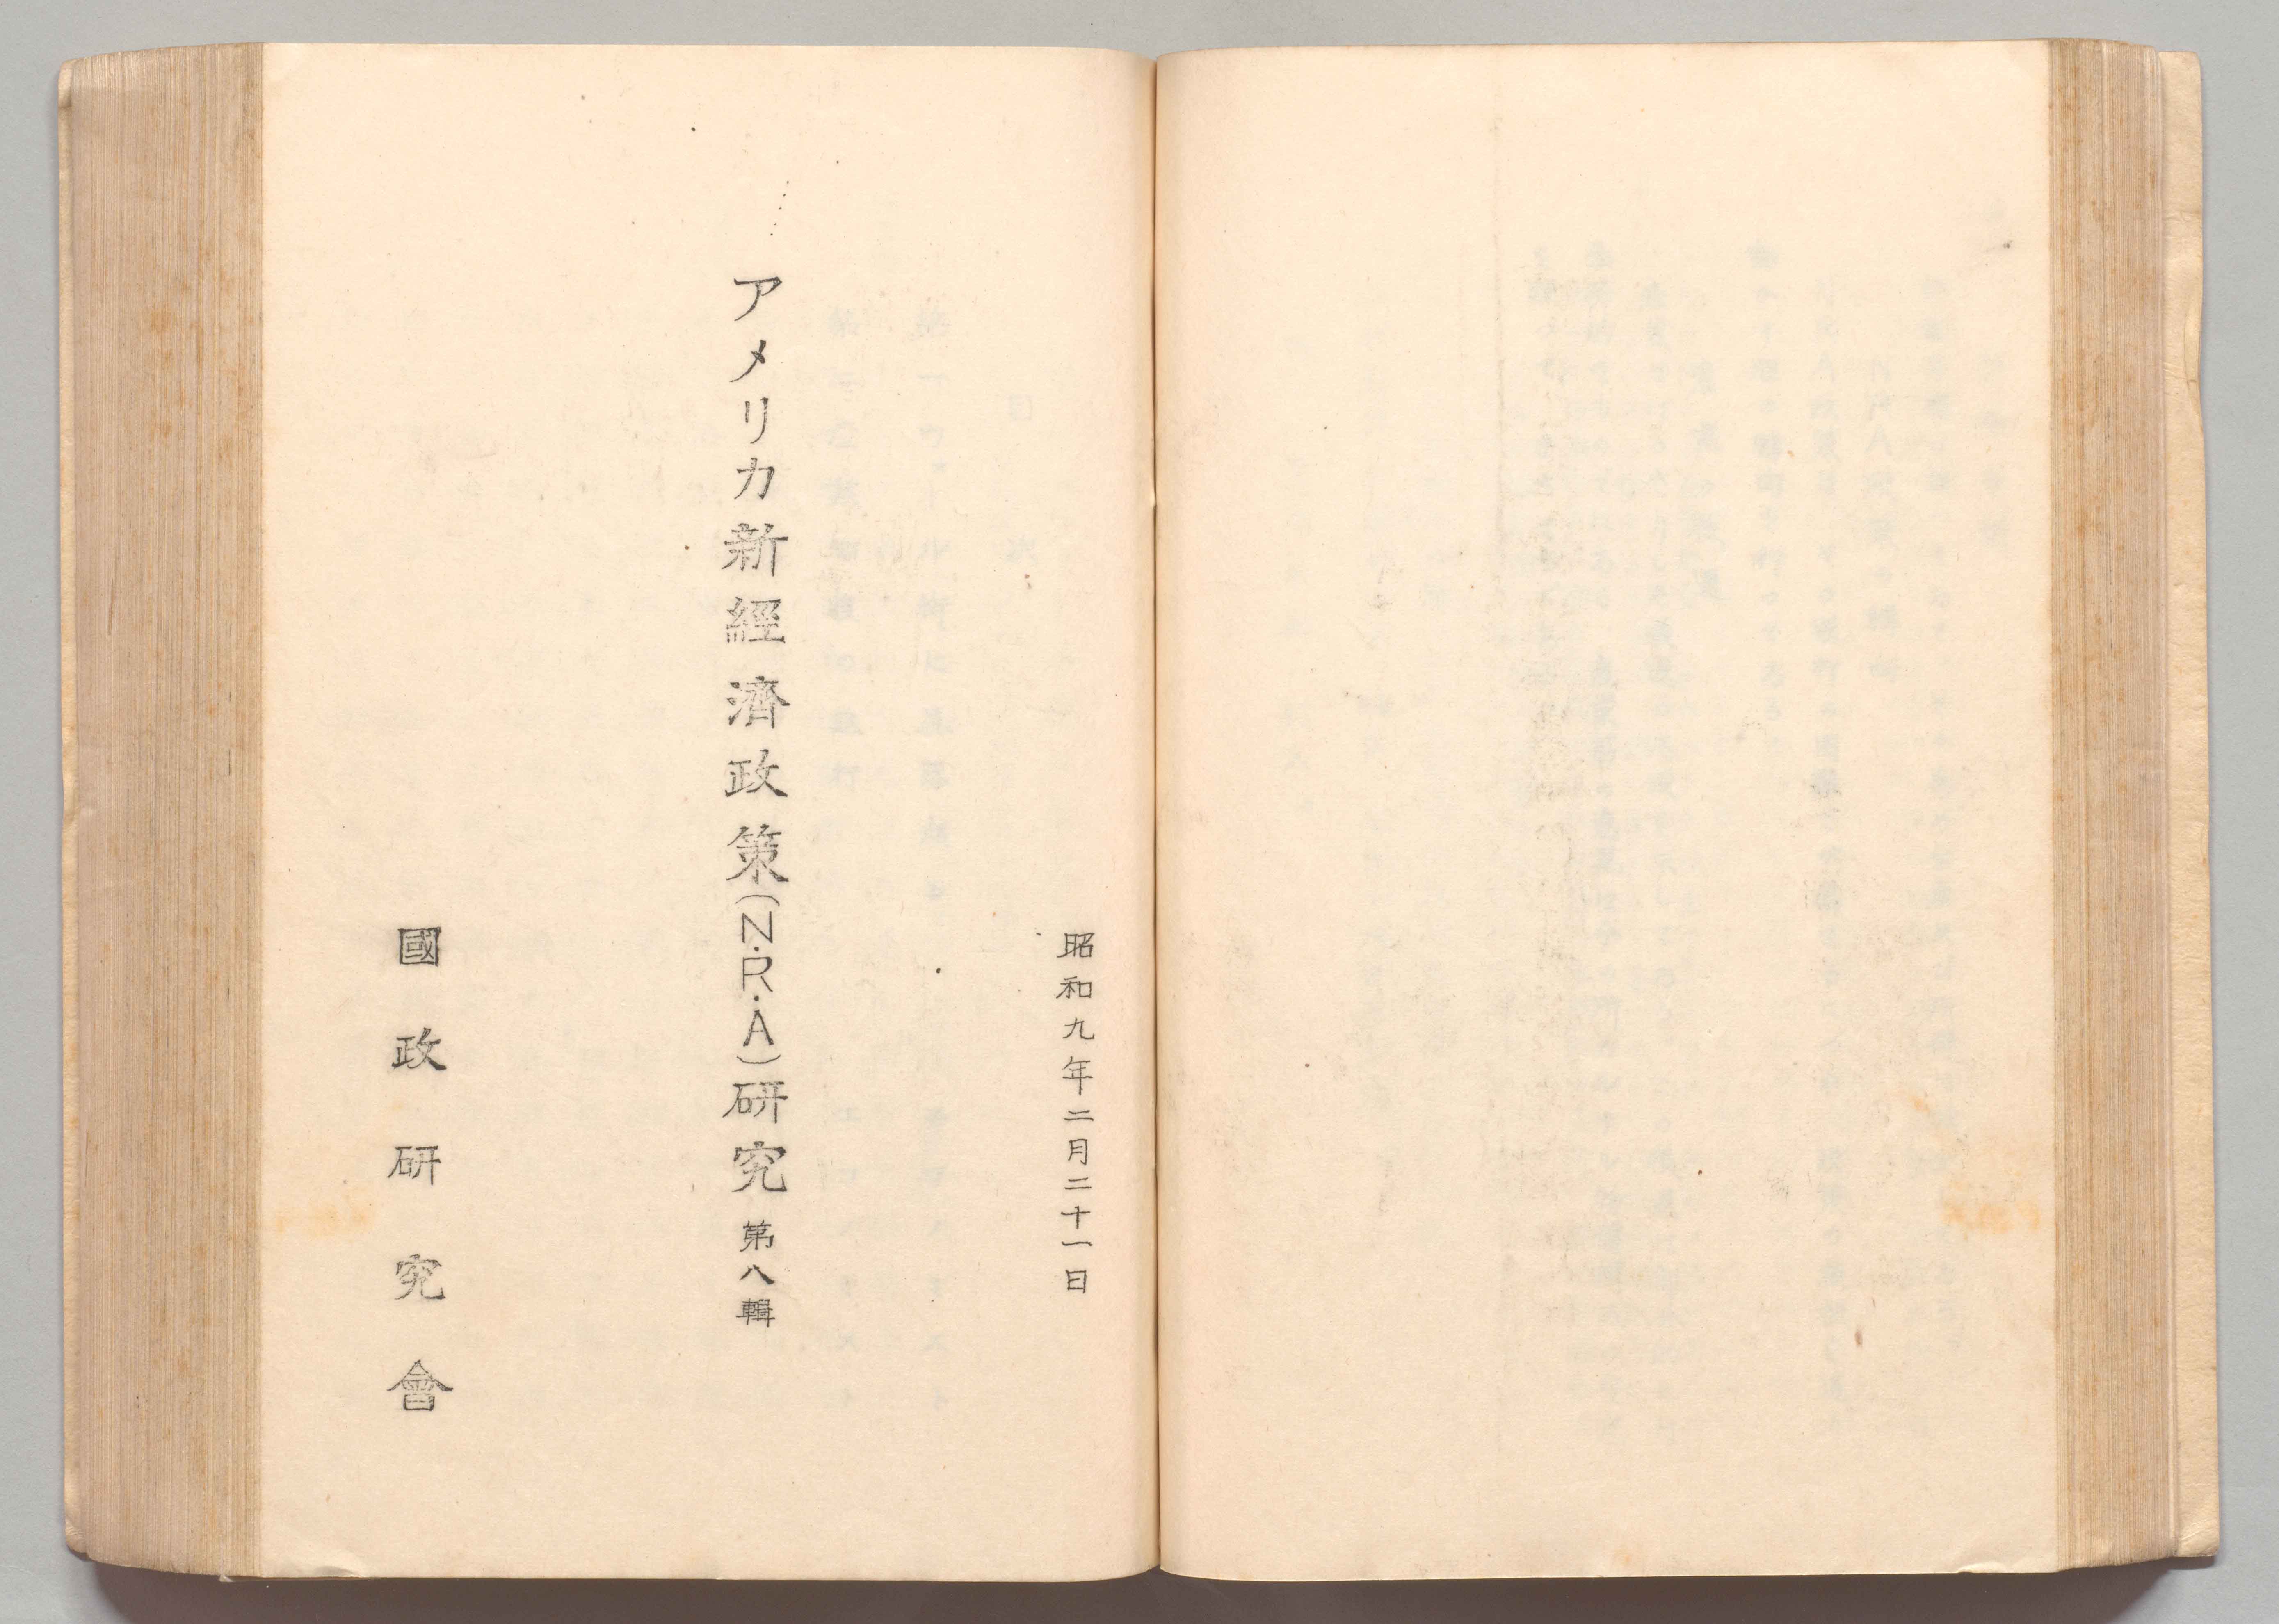 昭和九年二月二十一日
アメリカ新經濟政策(N.R.A)研究 第八輯
國政研究會